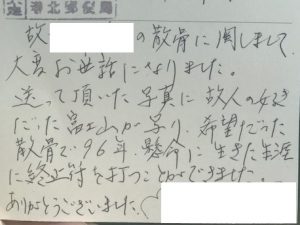 巻北郵便局
故 の散骨に関しまして
大変お世話になりました。
送って頂いた写真に故人の好き
だった富士山が写り、希望だった
散骨で96年懸命に生きた生涯
に終止符を打つことができました。
ありがとうございました。